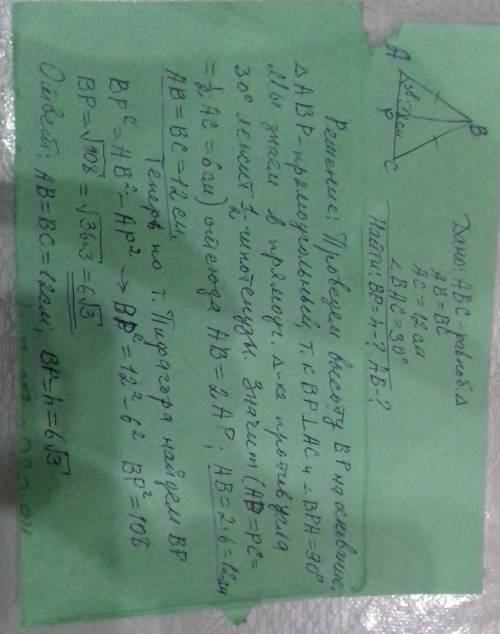 Дано: ABC-равноб. Δ
AB=BC
AC=12 см
∠BAC=30°
Найти: BP=h-? AB-?
A
B
C
P
30°
12см
Решение: Проведем высоту BP на основание,
ΔABP-прямоугольный, т.к BP⊥AC и ∠BPA=90°
Мы знаем в прямоуг. Δ-ке против угла
30° лежит 1/2 гипотенузы. Значит (AP=PC=
=1/2 AC=6см) отсюда AB=2AP, AB=2·6=12см
AB=BC=12см.
Теперь по т. Пифагора найдем BP
BP²=AB²-AP² → BP²=12²-6² BP²=108
BP=√108=√36·3=6√3
Ответ: AB=BC=12см, BP=h=6√3